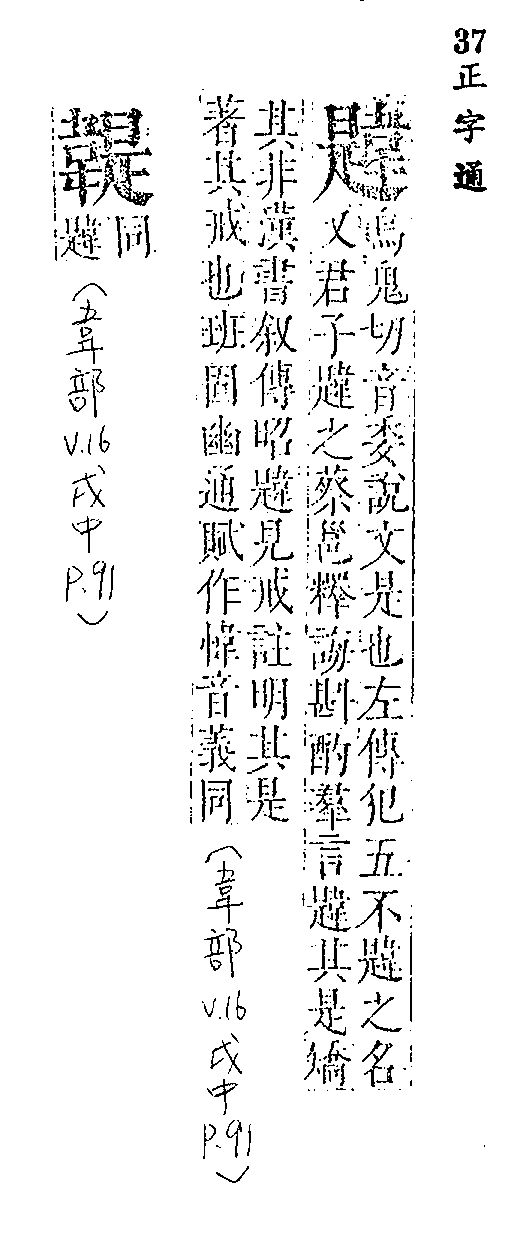 37 正字通
韙
烏鬼切音委說文是也左傳犯五不韙之名
又君子韙之蔡邕釋誨斟酌羣言韙其是矯
其非漢書叙傳昭韙見戒註明其是
著其戒也班固幽通賦作愇音義同
(韋部 V.16 戌中 P.91)
同
韙
(韋部 V.16 戌中 P.91)